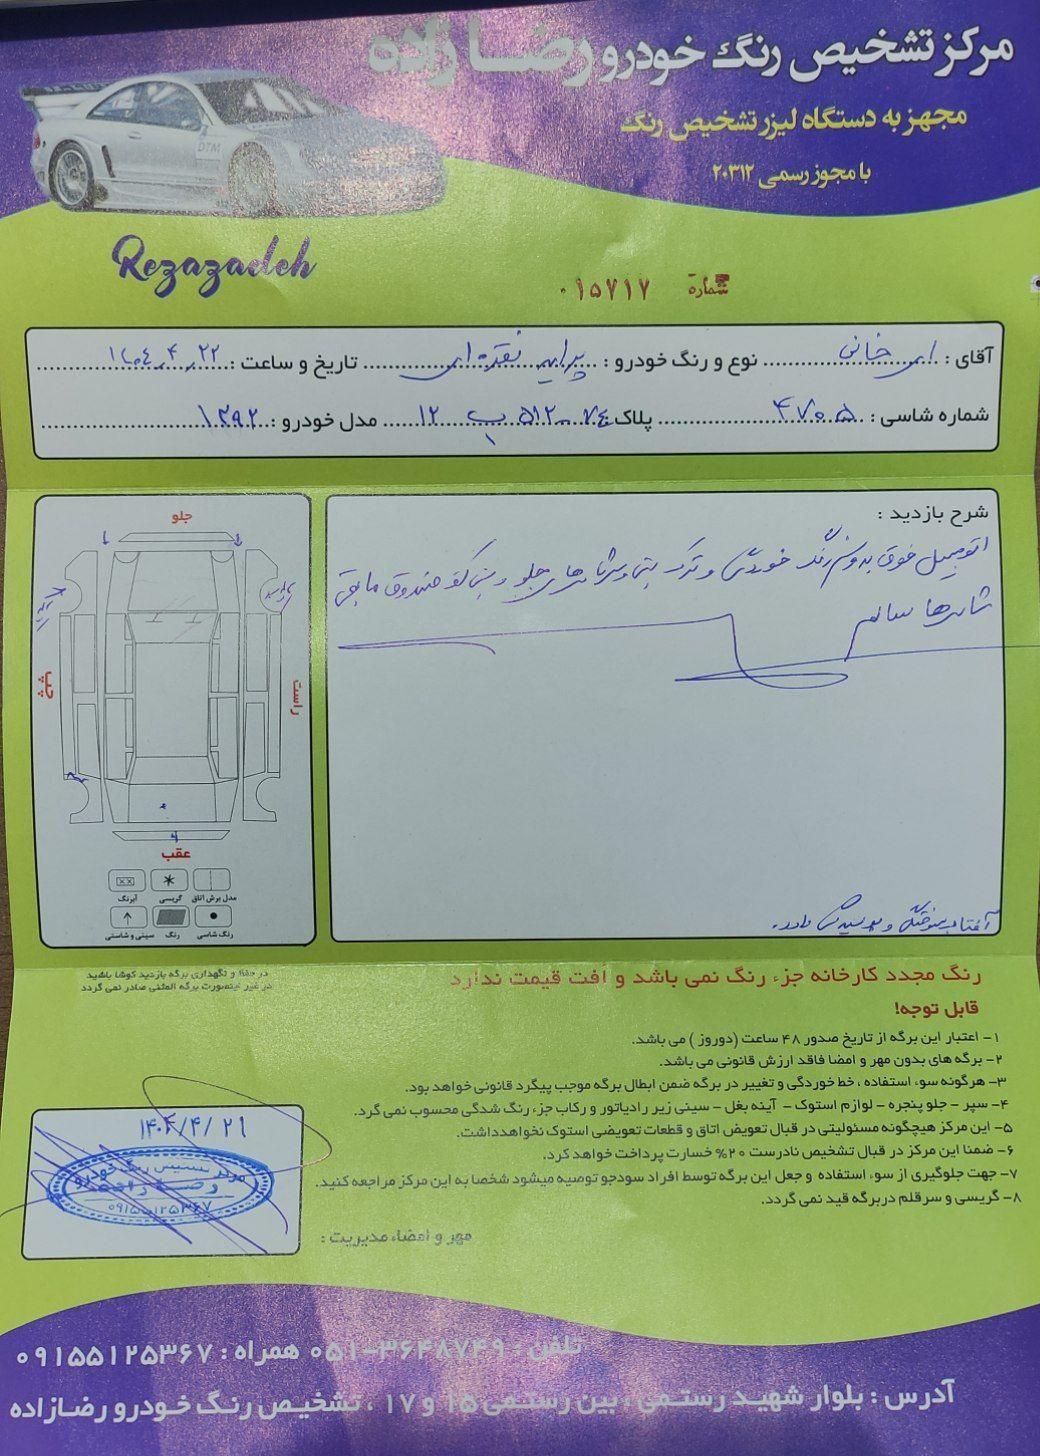 مرکز تشخیص رنگ خودرو رضازاده
مجهز به دستگاه لیزر تشخیص رنگ
با مجوز رسمی ۲۰۳۱۲
Rezazadeh
DTM
شماره ۰۱۵۷۱۷
آقای : خانی نوع و رنگ خودرو : پراید نقره‌ای تاریخ و ساعت : ۱۴۰۴,۴,۲۲
شماره شاسی : ۴۷۰۵ پلاک ۷۴ - ۵۱۲ ب ۱۲ مدل خودرو : ۱۳۹۲
شرح بازدید :
اتومبیل فوق بدون رنگ خوردگی و ترک جلو کف صندوق مابقی
شاسی‌ها سالم
آفتاب سوختگی و پوسیدگی دارد.
جلو
چپ
راست
عقب
مدل برش اتاق گریسی آبرنگ
رنگ شاسی رنگ سینی و شاسی
در حفظ و نگهداری برگه بازدید کوشا باشید
در غیر اینصورت برگه المثنی صادر نمی گردد
رنگ مجدد کارخانه جزء رنگ نمی باشد و اُفت قیمت ندارد
قابل توجه!
۱- اعتبار این برگه از تاریخ صدور ۴۸ ساعت (دوروز ) می باشد.
۲- برگه های بدون مهر و امضا فاقد ارزش قانونی می باشد.
۳- هرگونه سوء استفاده ، خط خوردگی و تغییر در برگه ضمن ابطال برگه موجب پیگرد قانونی خواهد بود.
۴- سپر - جلو پنجره - لوازم استوک - آینه بغل - سینی زیر رادیاتور و رکاب جزء رنگ شدگی محسوب نمی گرد.
۵- این مرکز هیچگونه مسئولیتی در قبال تعویض اتاق و قطعات تعویضی استوک نخواهدداشت.
۶- ضمنا این مرکز در قبال تشخیص نادرست ۲۰% خسارت پرداخت خواهد کرد.
۷- جهت جلوگیری از سوء استفاده و جعل این برگه توسط افراد سودجو توصیه میشود شخصا به این مرکز مراجعه کنید.
۸- گریسی و سرقلم دربرگه قید نمی گردد.
۱۴۰۴/۴/۲۱
مرکز تشخیص رنگ خودرو
رضازاده
۰۹۱۵۵۱۲۵۳۶۷
مهر و امضاء مدیریت :
تلفن : ۰۵۱-۳۶۴۸۷۴۹ همراه : ۰۹۱۵۵۱۲۵۳۶۷
آدرس : بلوار شهید رستمی ، بین رستمی ۱۵ و ۱۷ ، تشخیص رنگ خودرو رضازاده